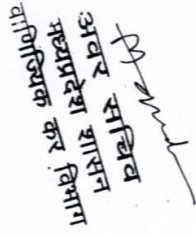 अवर सचिव
मध्यप्रदेश शासन
वाणिज्यिक कर विभाग